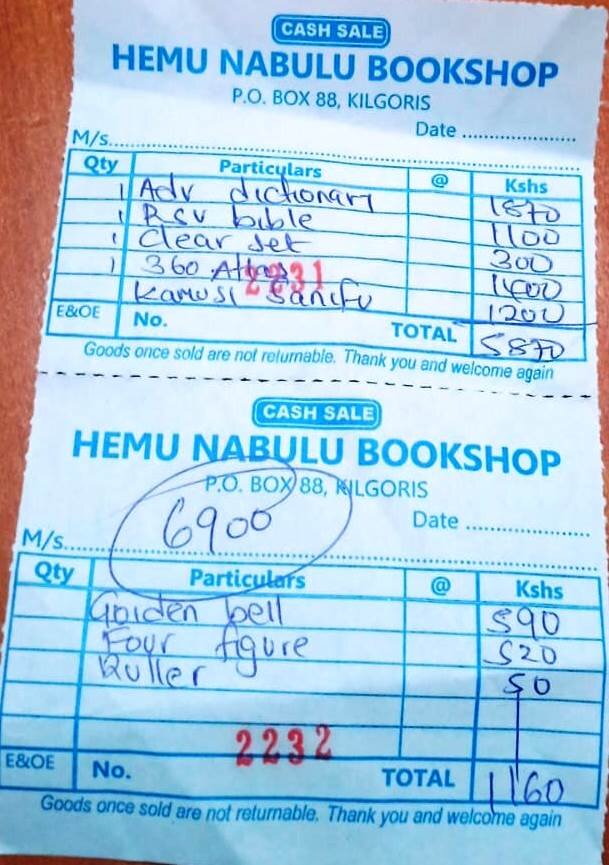 CASH SALE
HEMU NABULU BOOKSHOP
P.O. BOX 88, KILGORIS
Date ....................
M/s..............................................................
Qty Particulars @ Kshs
1 Adv dictionary 1870
1 RSV bible 1100
1 Clear set 300
1 360 Atlas 1400
Kamusi Sanifu 1200
2231
E&OE No. TOTAL 5870
Goods once sold are not returnable. Thank you and welcome again
CASH SALE
HEMU NABULU BOOKSHOP
P.O. BOX 88, KILGORIS
6900
Date ....................
M/s..............................................................
Qty Particulars @ Kshs
Golden bell 590
Four figure 520
Ruller 50
2232
E&OE No. TOTAL 1160
Goods once sold are not returnable. Thank you and welcome again